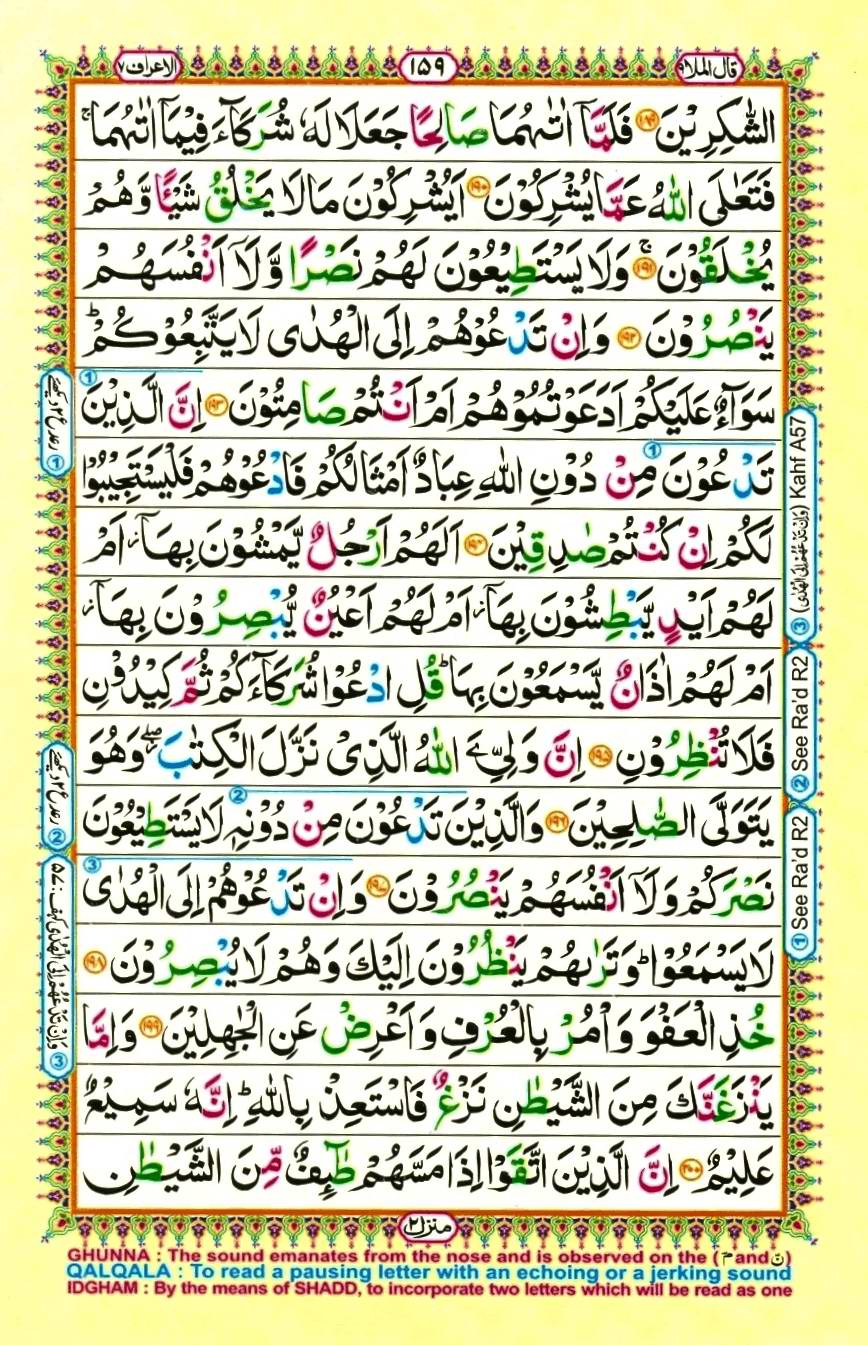 قال الملا ٩
١٥٩
الاعراف ٧
الشّٰكِرِيْنَ ۝۱۸۹ فَلَمَّاۤ اٰتٰىهُمَا صَالِحًا جَعَلَا لَهٗ شُرَكَآءَ فِيْمَاۤ اٰتٰىهُمَا ۚ
فَتَعٰلَى اللّٰهُ عَمَّا يُشْرِكُوْنَ ۝۱۹۰ اَيُشْرِكُوْنَ مَا لَا يَخْلُقُ شَيْـًٔا وَّهُمْ
يُخْلَقُوْنَ ۝۱۹۱ ۚ وَلَا يَسْتَطِيْعُوْنَ لَهُمْ نَصْرًا وَّلَاۤ اَنْفُسَهُمْ
يَنْصُرُوْنَ ۝۱۹۲ وَاِنْ تَدْعُوْهُمْ اِلَى الْهُدٰى لَا يَتَّبِعُوْكُمْ ؕ
سَوَآءٌ عَلَيْكُمْ اَدَعَوْتُمُوْهُمْ اَمْ اَنْتُمْ صَامِتُوْنَ ۝۱۹۳ اِنَّ الَّذِيْنَ
تَدْعُوْنَ مِنْ دُوْنِ اللّٰهِ عِبَادٌ اَمْثَالُكُمْ فَادْعُوْهُمْ فَلْيَسْتَجِيْبُوْا
لَكُمْ اِنْ كُنْتُمْ صٰدِقِيْنَ ۝۱۹۴ اَلَهُمْ اَرْجُلٌ يَّمْشُوْنَ بِهَاۤ ؗ اَمْ
لَهُمْ اَيْدٍ يَّبْطِشُوْنَ بِهَاۤ ؗ اَمْ لَهُمْ اَعْيُنٌ يُّبْصِرُوْنَ بِهَاۤ ؗ
اَمْ لَهُمْ اٰذَانٌ يَّسْمَعُوْنَ بِهَا ؕ قُلِ ادْعُوْا شُرَكَآءَكُمْ ثُمَّ كِيْدُوْنِ
فَلَا تُنْظِرُوْنِ ۝۱۹۵ اِنَّ وَلِيِّ َۧ اللّٰهُ الَّذِيْ نَزَّلَ الْكِتٰبَ ۖؗ وَهُوَ
يَتَوَلَّى الصّٰلِحِيْنَ ۝۱۹۶ وَالَّذِيْنَ تَدْعُوْنَ مِنْ دُوْنِهٖ لَا يَسْتَطِيْعُوْنَ
نَصْرَكُمْ وَلَاۤ اَنْفُسَهُمْ يَنْصُرُوْنَ ۝۱۹۷ وَاِنْ تَدْعُوْهُمْ اِلَى الْهُدٰى
لَا يَسْمَعُوْا ؕ وَتَرٰىهُمْ يَنْظُرُوْنَ اِلَيْكَ وَهُمْ لَا يُبْصِرُوْنَ ۝۱۹۸
خُذِ الْعَفْوَ وَاْمُرْ بِالْعُرْفِ وَاَعْرِضْ عَنِ الْجٰهِلِيْنَ ۝۱۹۹ وَاِمَّا
يَنْزَغَنَّكَ مِنَ الشَّيْطٰنِ نَزْغٌ فَاسْتَعِذْ بِاللّٰهِ ؕ اِنَّهٗ سَمِيْعٌ
عَلِيْمٌ ۝۲۰۰ اِنَّ الَّذِيْنَ اتَّقَوْا اِذَا مَسَّهُمْ طٰٓئِفٌ مِّنَ الشَّيْطٰنِ
منزل ٢
③ (وَاِنْ تَدْعُهُمْ اِلَى الْهُدٰى) Kahf A57
② See Ra'd R2
① See Ra'd R2
① رعد ع ۲ دیکھئے
② رعد ع ۲ دیکھئے
③ وَاِنْ تَدْعُهُمْ اِلَى الْهُدٰى کہف : ۵۷
GHUNNA : The sound emanates from the nose and is observed on the (م and ن)
QALQALA : To read a pausing letter with an echoing or a jerking sound
IDGHAM : By the means of SHADD, to incorporate two letters which will be read as one